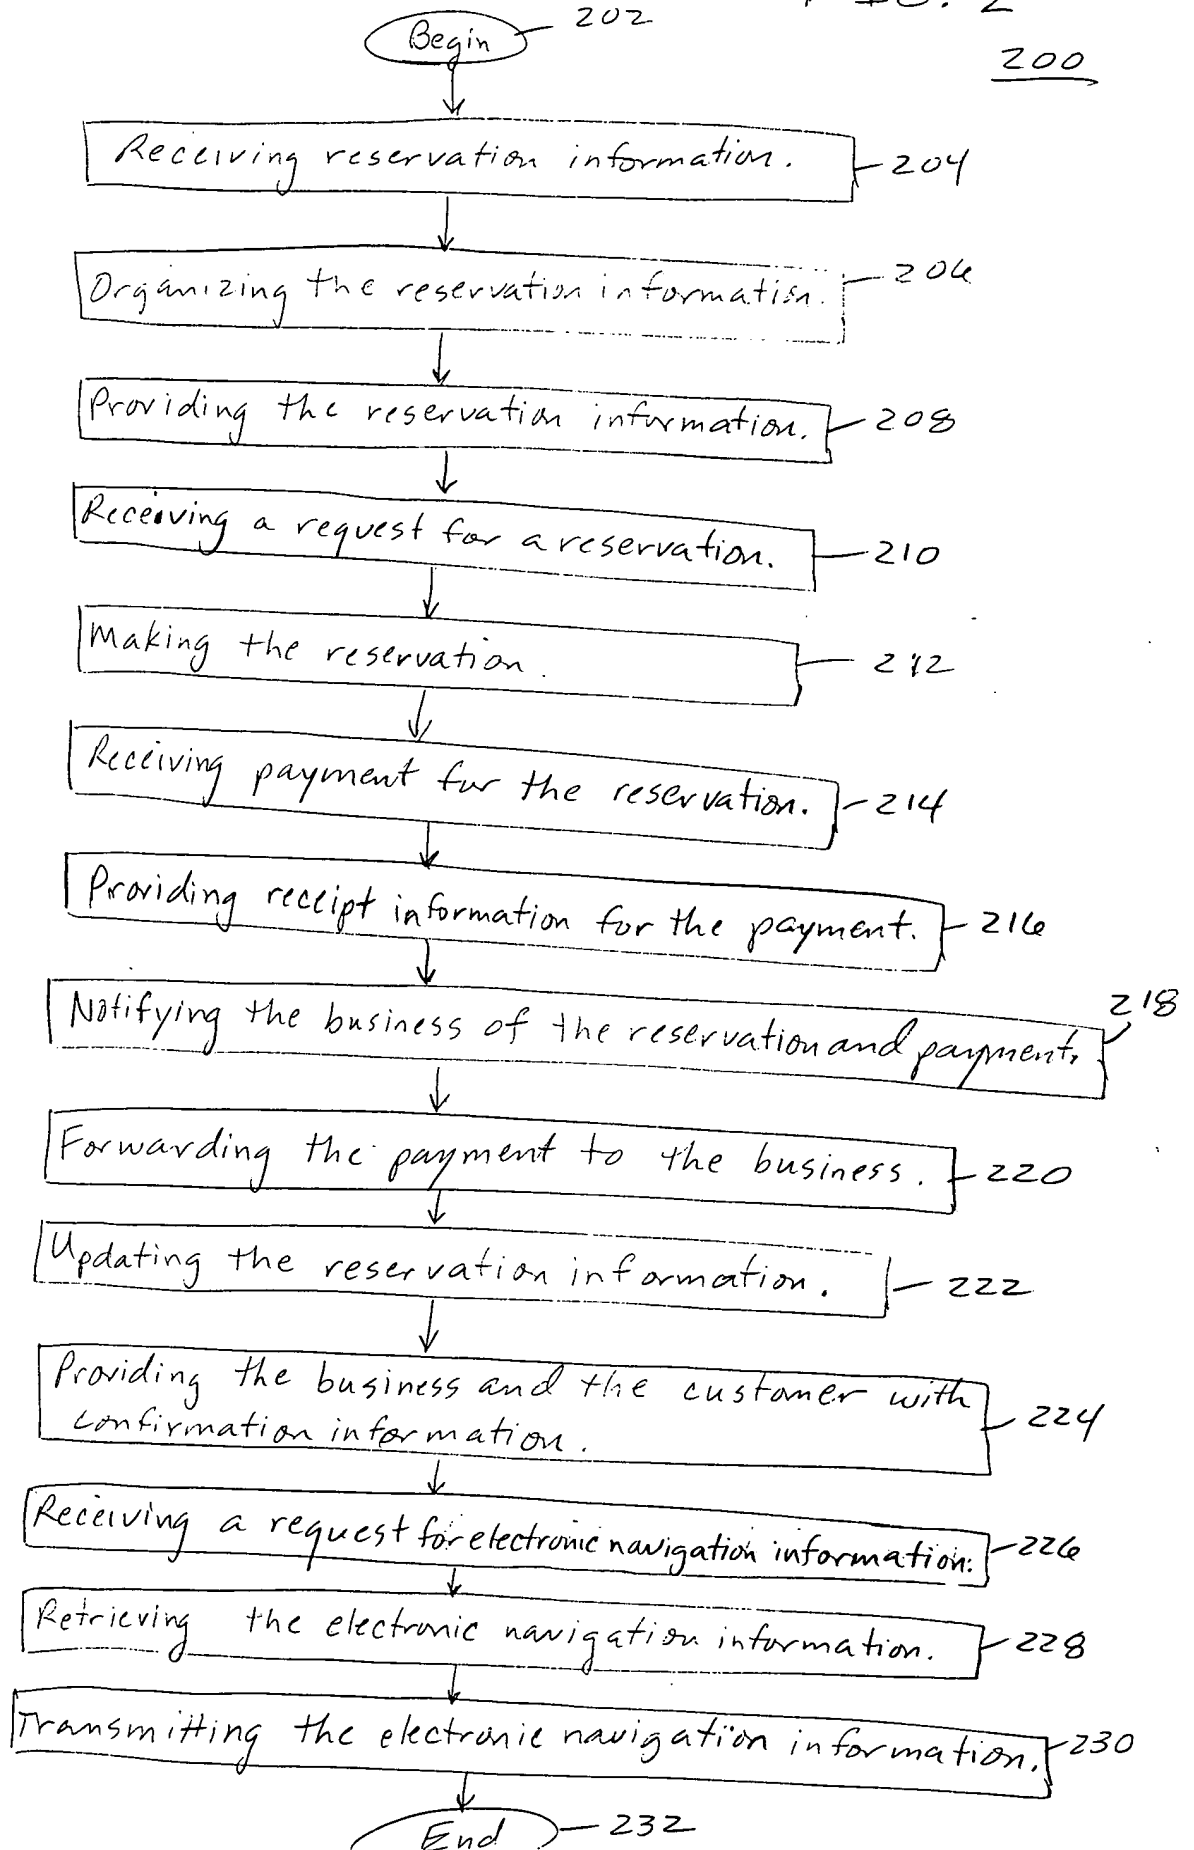 FIG. 2
202
Begin
200
Receiving reservation information.
204
Organizing the reservation information.
206
Providing the reservation information.
208
Receiving a request for a reservation.
210
Making the reservation.
212
Receiving payment for the reservation.
214
Providing receipt information for the payment.
216
218
Notifying the business of the reservation and payment.
Forwarding the payment to the business.
220
Updating the reservation information.
222
Providing the business and the customer with
confirmation information.
224
Receiving a request for electronic navigation information.
226
Retrieving the electronic navigation information.
228
Transmitting the electronic navigation information.
230
End
232